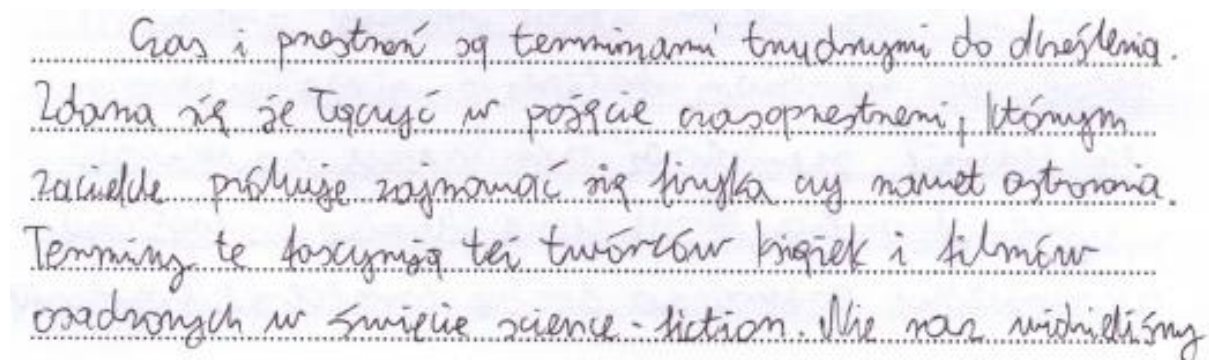 Czas i przestrzeń są terminami trudnymi do określenia.
Zdarza się je łączyć w pojęcie czasoprzestrzeni, którym
zaciekle próbuje zajmować się fizyka czy nawet astronomia.
Terminy te fascynują też twórców książek i filmów
osadzonych w świecie science-fiction. Nie raz widzieliśmy